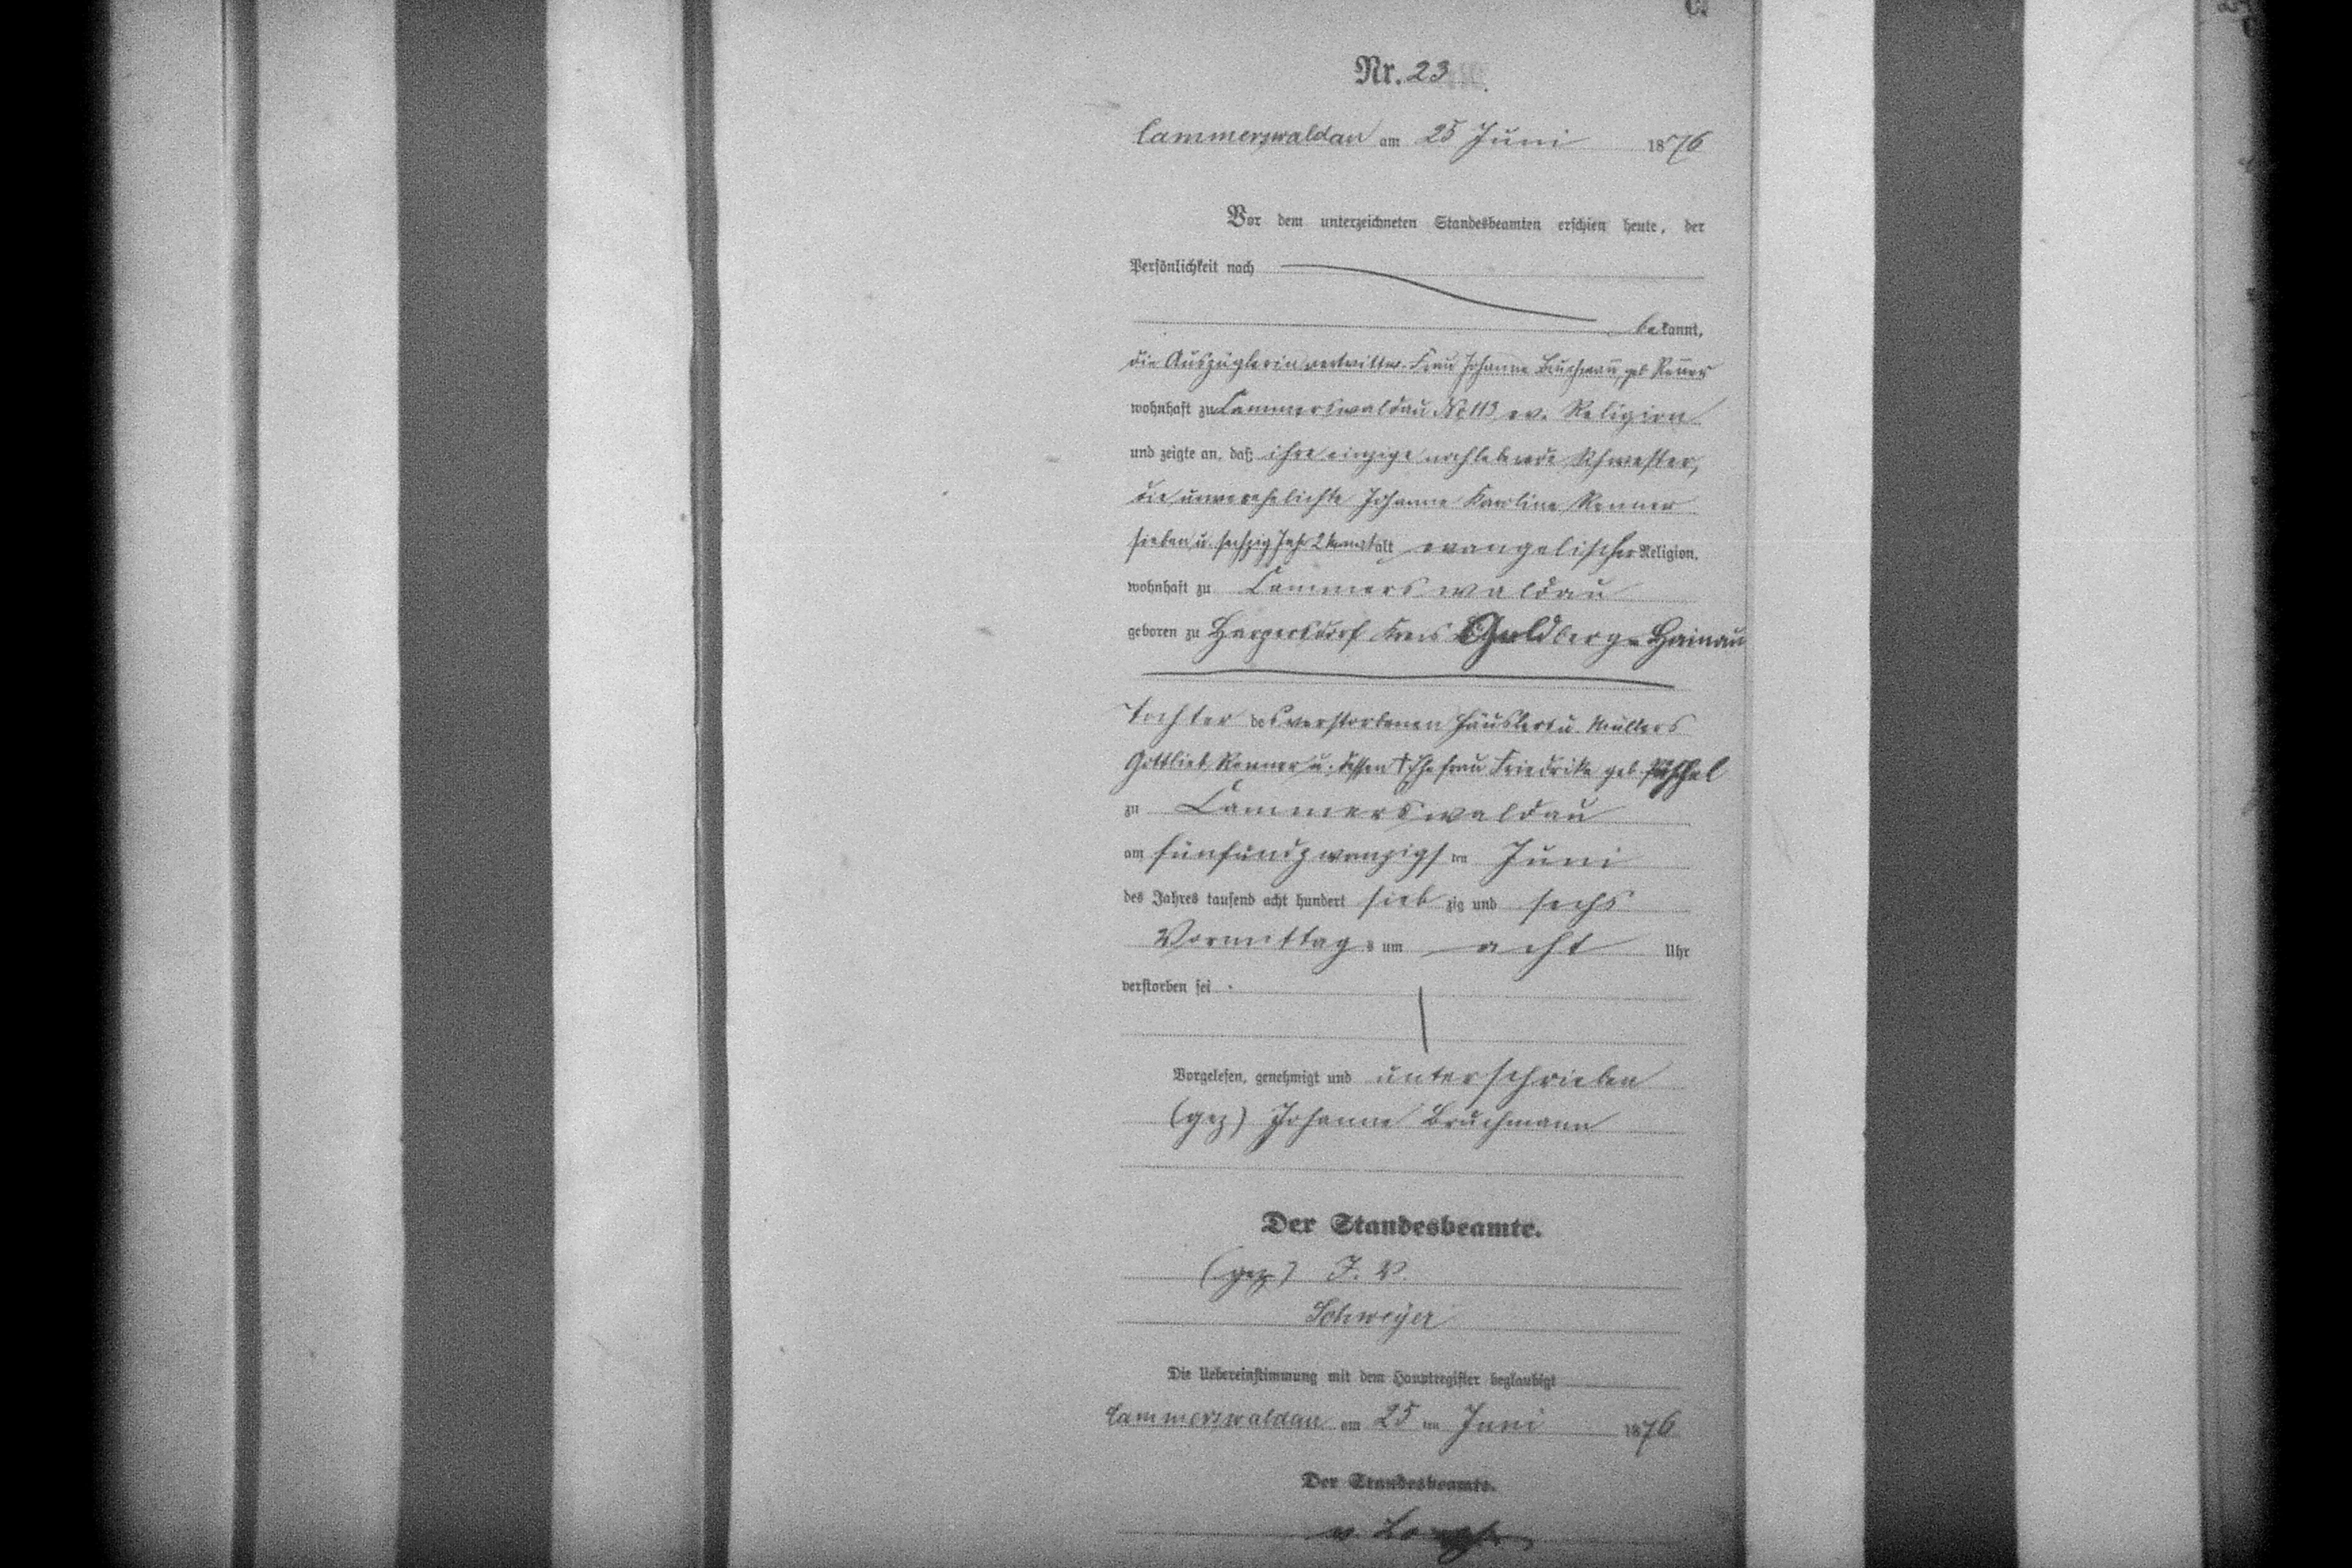 C.
Nr. 23
Cammerswaldau am 25 Juni 1876
Vor dem unterzeichneten Standesbeamten erschien heute, der
Persönlichkeit nach
bekannt,
die Auszüglerin verwittw. Frau Johanne Bruchman̄, geb Ren̄er
wohnhaft zu Cammerswaldau No 113, ev. Religion
und zeigte an, daß ihre einzige nochlebende Schwester,
die unverehelichte Johanne Karoline Renner
sieben u. sechzig Jahr 2 Monat alt evangelischer Religion,
wohnhaft zu Cammerswaldau
geboren zu Harpersdorf Kreis Goldberg-Hainau
Tochter des verstorbenen Häuslers u. Müllers
Gottlieb Renner u. dessen † Ehefrau Friedrike geb.
zu Cammerswaldau
am fünfundzwanzigsten Juni
des Jahres tausend acht hundert siebzig und sechs
Vormittags um acht Uhr
verstorben sei.
Vorgelesen, genehmigt und unterschrieben
(gez) Johanne Bruchmann
Der Standesbeamte.
(gez) J. V.
Schweyer
Die Uebereinstimmung mit dem Hauptregister beglaubigt
Cammerswaldau am 25ten Juni 1876
Der Standesbeamte.